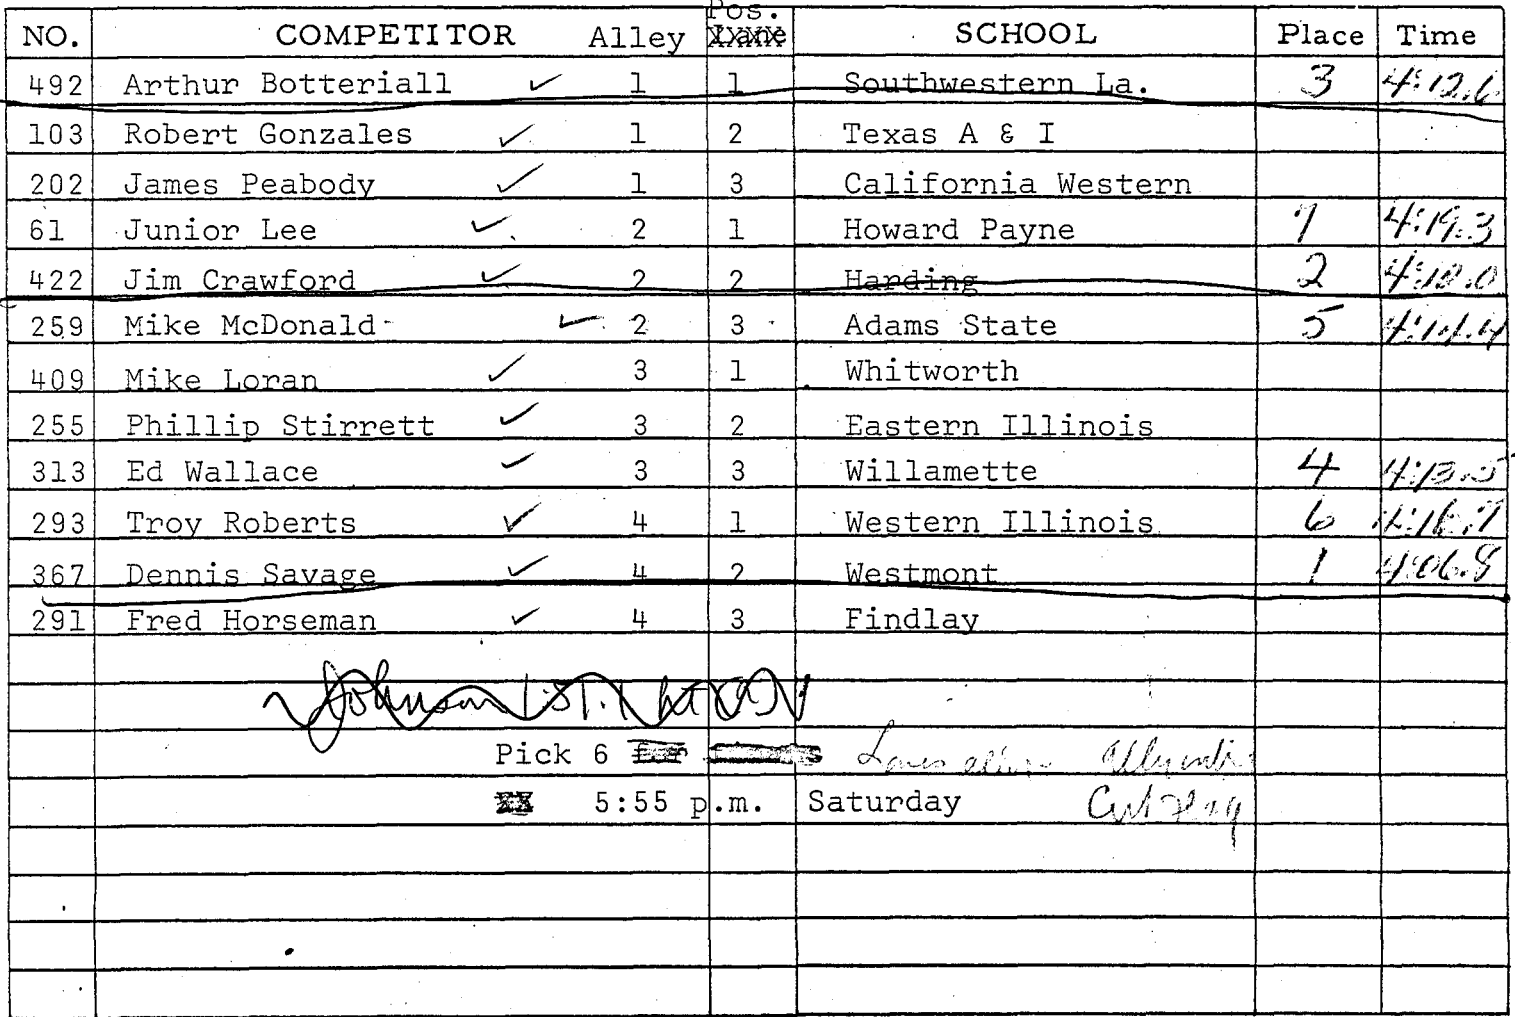 Pos.
NO. COMPETITOR Alley SCHOOL Place Time
492 Arthur Botteriall ✓ 1 1 Southwestern La. 3 4:12.6
103 Robert Gonzales ✓ 1 2 Texas A & I
202 James Peabody ✓ 1 3 California Western
61 Junior Lee ✓ 2 1 Howard Payne 7 4:19.3
422 Jim Crawford ✓ 2 2 Harding 2
259 Mike McDonald ✓ 2 3 Adams State 5
409 Mike Loran ✓ 3 1 Whitworth
255 Phillip Stirrett ✓ 3 2 Eastern Illinois
313 Ed Wallace ✓ 3 3 Willamette 4 4:13.5
293 Troy Roberts ✓ 4 1 Western Illinois 6
367 Dennis Savage ✓ 4 2 Westmont 1 4:06.8
291 Fred Horseman ✓ 4 3 Findlay
Johnson
Pick 6
5:55 p.m. Saturday